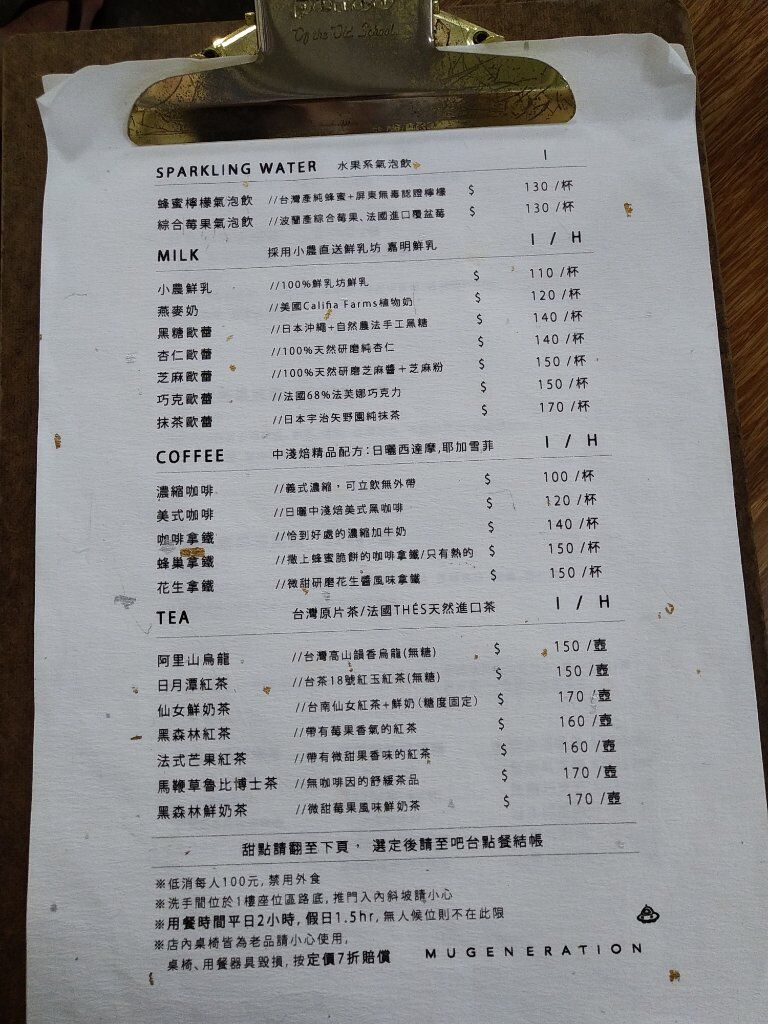 Of the Old School
SPARKLING WATER 水果系氣泡飲 I
蜂蜜檸檬氣泡飲 //台灣產純蜂蜜+屏東無毒認證檸檬 $ 130 /杯
綜合莓果氣泡飲 //波蘭產綜合莓果、法國進口覆盆莓 $ 130 /杯
MILK 採用小農直送鮮乳坊 嘉明鮮乳 I / H
小農鮮乳 //100%鮮乳坊鮮乳 $ 110 /杯
燕麥奶 //美國Califia Farms植物奶 $ 120 /杯
黑糖歐蕾 //日本沖繩+自然農法手工黑糖 $ 140 /杯
杏仁歐蕾 //100%天然研磨純杏仁 $ 140 /杯
芝麻歐蕾 //100%天然研磨芝麻醬+芝麻粉 $ 150 /杯
巧克歐蕾 //法國68%法芙娜巧克力 $ 150 /杯
抹茶歐蕾 //日本宇治矢野園純抹茶 $ 170 /杯
COFFEE 中淺焙精品配方:日曬西達摩,耶加雪菲 I / H
濃縮咖啡 //義式濃縮，可立飲無外帶 $ 100 /杯
美式咖啡 //日曬中淺焙美式黑咖啡 $ 120 /杯
咖啡拿鐵 //恰到好處的濃縮加牛奶 $ 140 /杯
蜂巢拿鐵 //撒上蜂蜜脆餅的咖啡拿鐵/只有熱的 $ 150 /杯
花生拿鐵 //微甜研磨花生醬風味拿鐵 $ 150 /杯
TEA 台灣原片茶/法國THÉS天然進口茶 I / H
阿里山烏龍 //台灣高山韻香烏龍(無糖) $ 150 /壺
日月潭紅茶 //台茶18號紅玉紅茶(無糖) $ 150 /壺
仙女鮮奶茶 //台南仙女紅茶+鮮奶(糖度固定) $ 170 /壺
黑森林紅茶 //帶有莓果香氣的紅茶 $ 160 /壺
法式芒果紅茶 //帶有微甜果香味的紅茶 $ 160 /壺
馬鞭草魯比博士茶 //無咖啡因的舒緩茶品 $ 170 /壺
黑森林鮮奶茶 //微甜莓果風味鮮奶茶 $ 170 /壺
甜點請翻至下頁， 選定後請至吧台點餐結帳
※低消每人100元,禁用外食
※洗手間位於1樓座位區路底,推門入內斜坡請小心
※用餐時間平日2小時,假日1.5hr,無人候位則不在此限
※店內桌椅皆為老品請小心使用,
桌椅、用餐器具毀損,按定價7折賠償 MUGENERATION